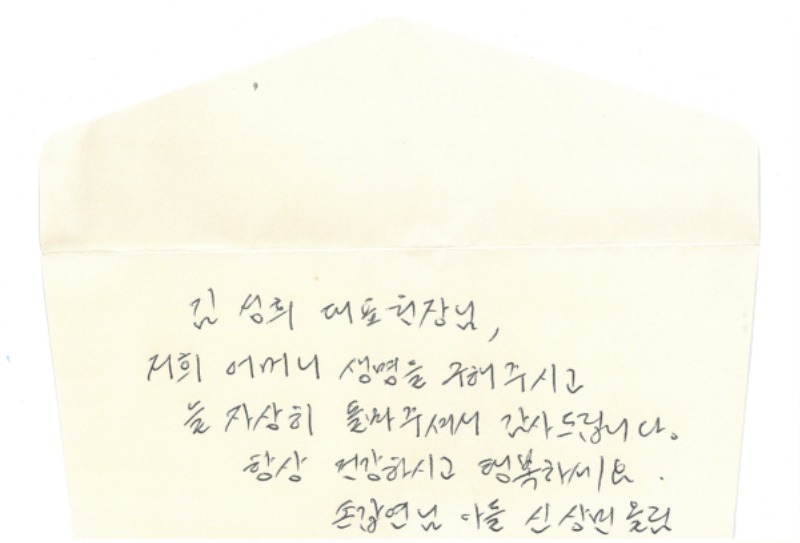 김 성희 대표원장님,
저희 어머니 생명을 구해주시고
늘 자상히 돌봐주셔서 감사드립니다.
항상 건강하시고 행복하세요.
손갑연님 아들 신상민 올림